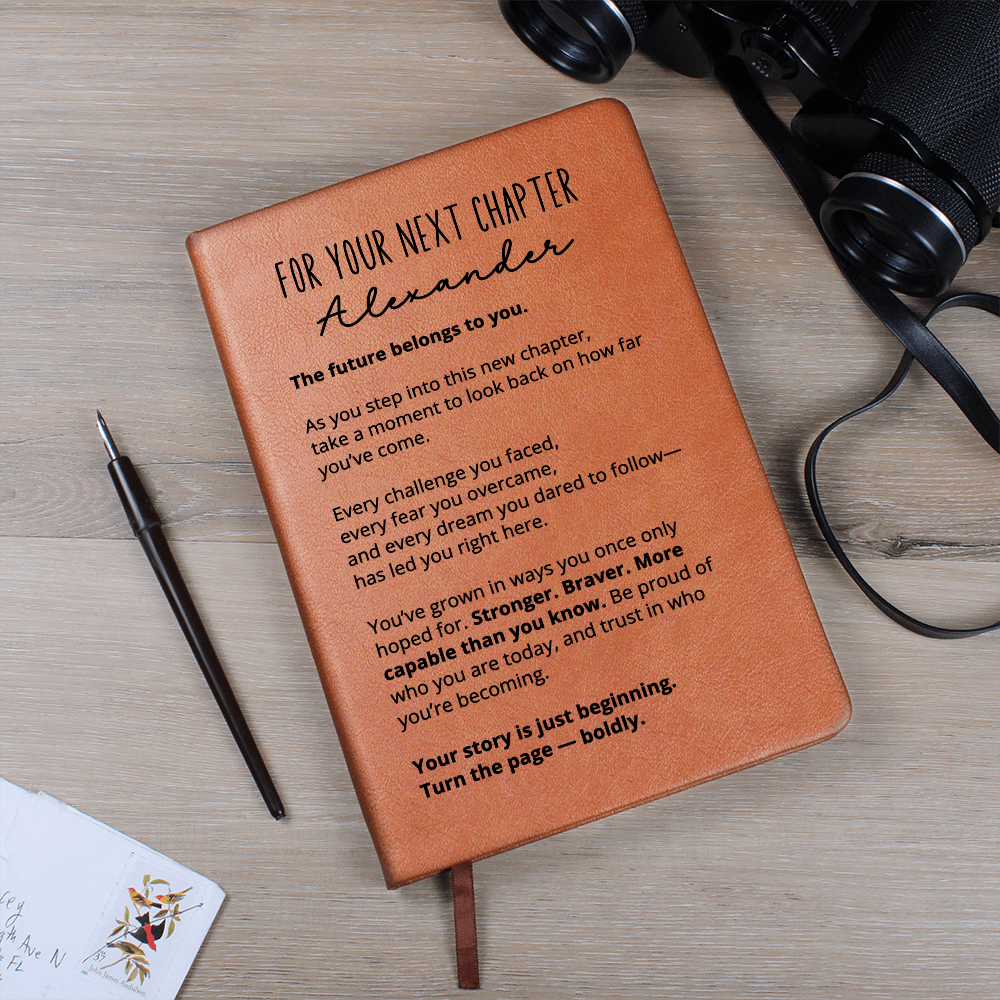 FOR YOUR NEXT CHAPTER
Alexander
The future belongs to you.
As you step into this new chapter,
take a moment to look back on how far
you've come.
Every challenge you faced,
every fear you overcame,
and every dream you dared to follow—
has led you right here.
You've grown in ways you once only
hoped for. Stronger. Braver. More
capable than you know. Be proud of
who you are today, and trust in who
you're becoming.
Your story is just beginning.
Turn the page — boldly.
Ave N
FL
37
John James Audubon